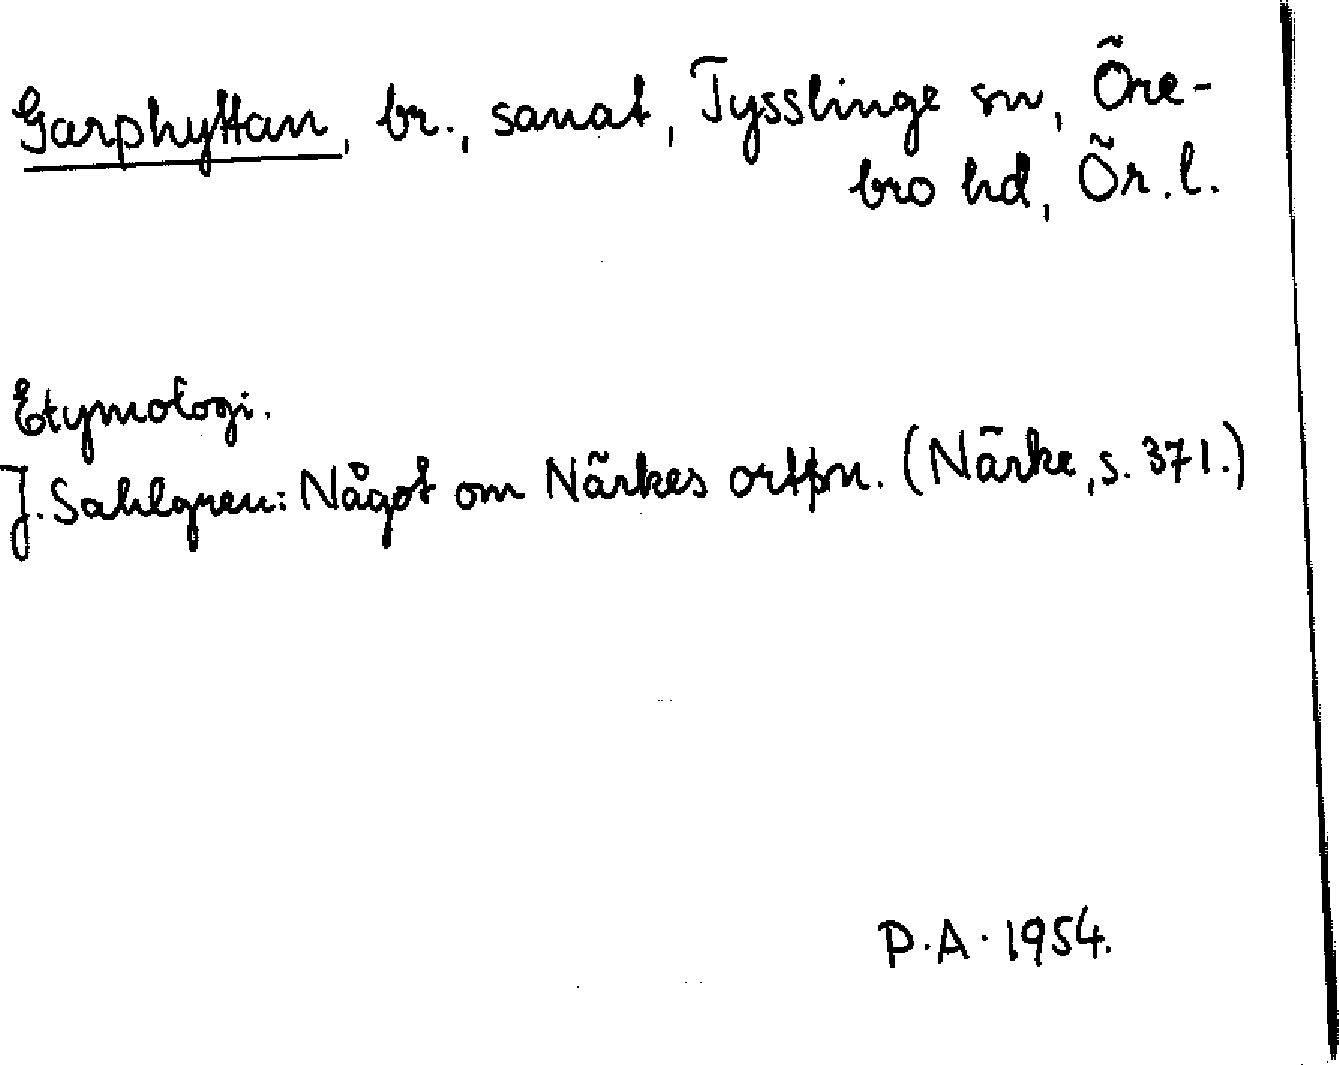 Garphyttan, br., sanat, Tysslinge sn, Öre-
bro hd, Ör. l.
Etymologi.
J. Sahlgren: Något om Närkes ortpn. (Närke, s. 371.)
P.A. 1954.